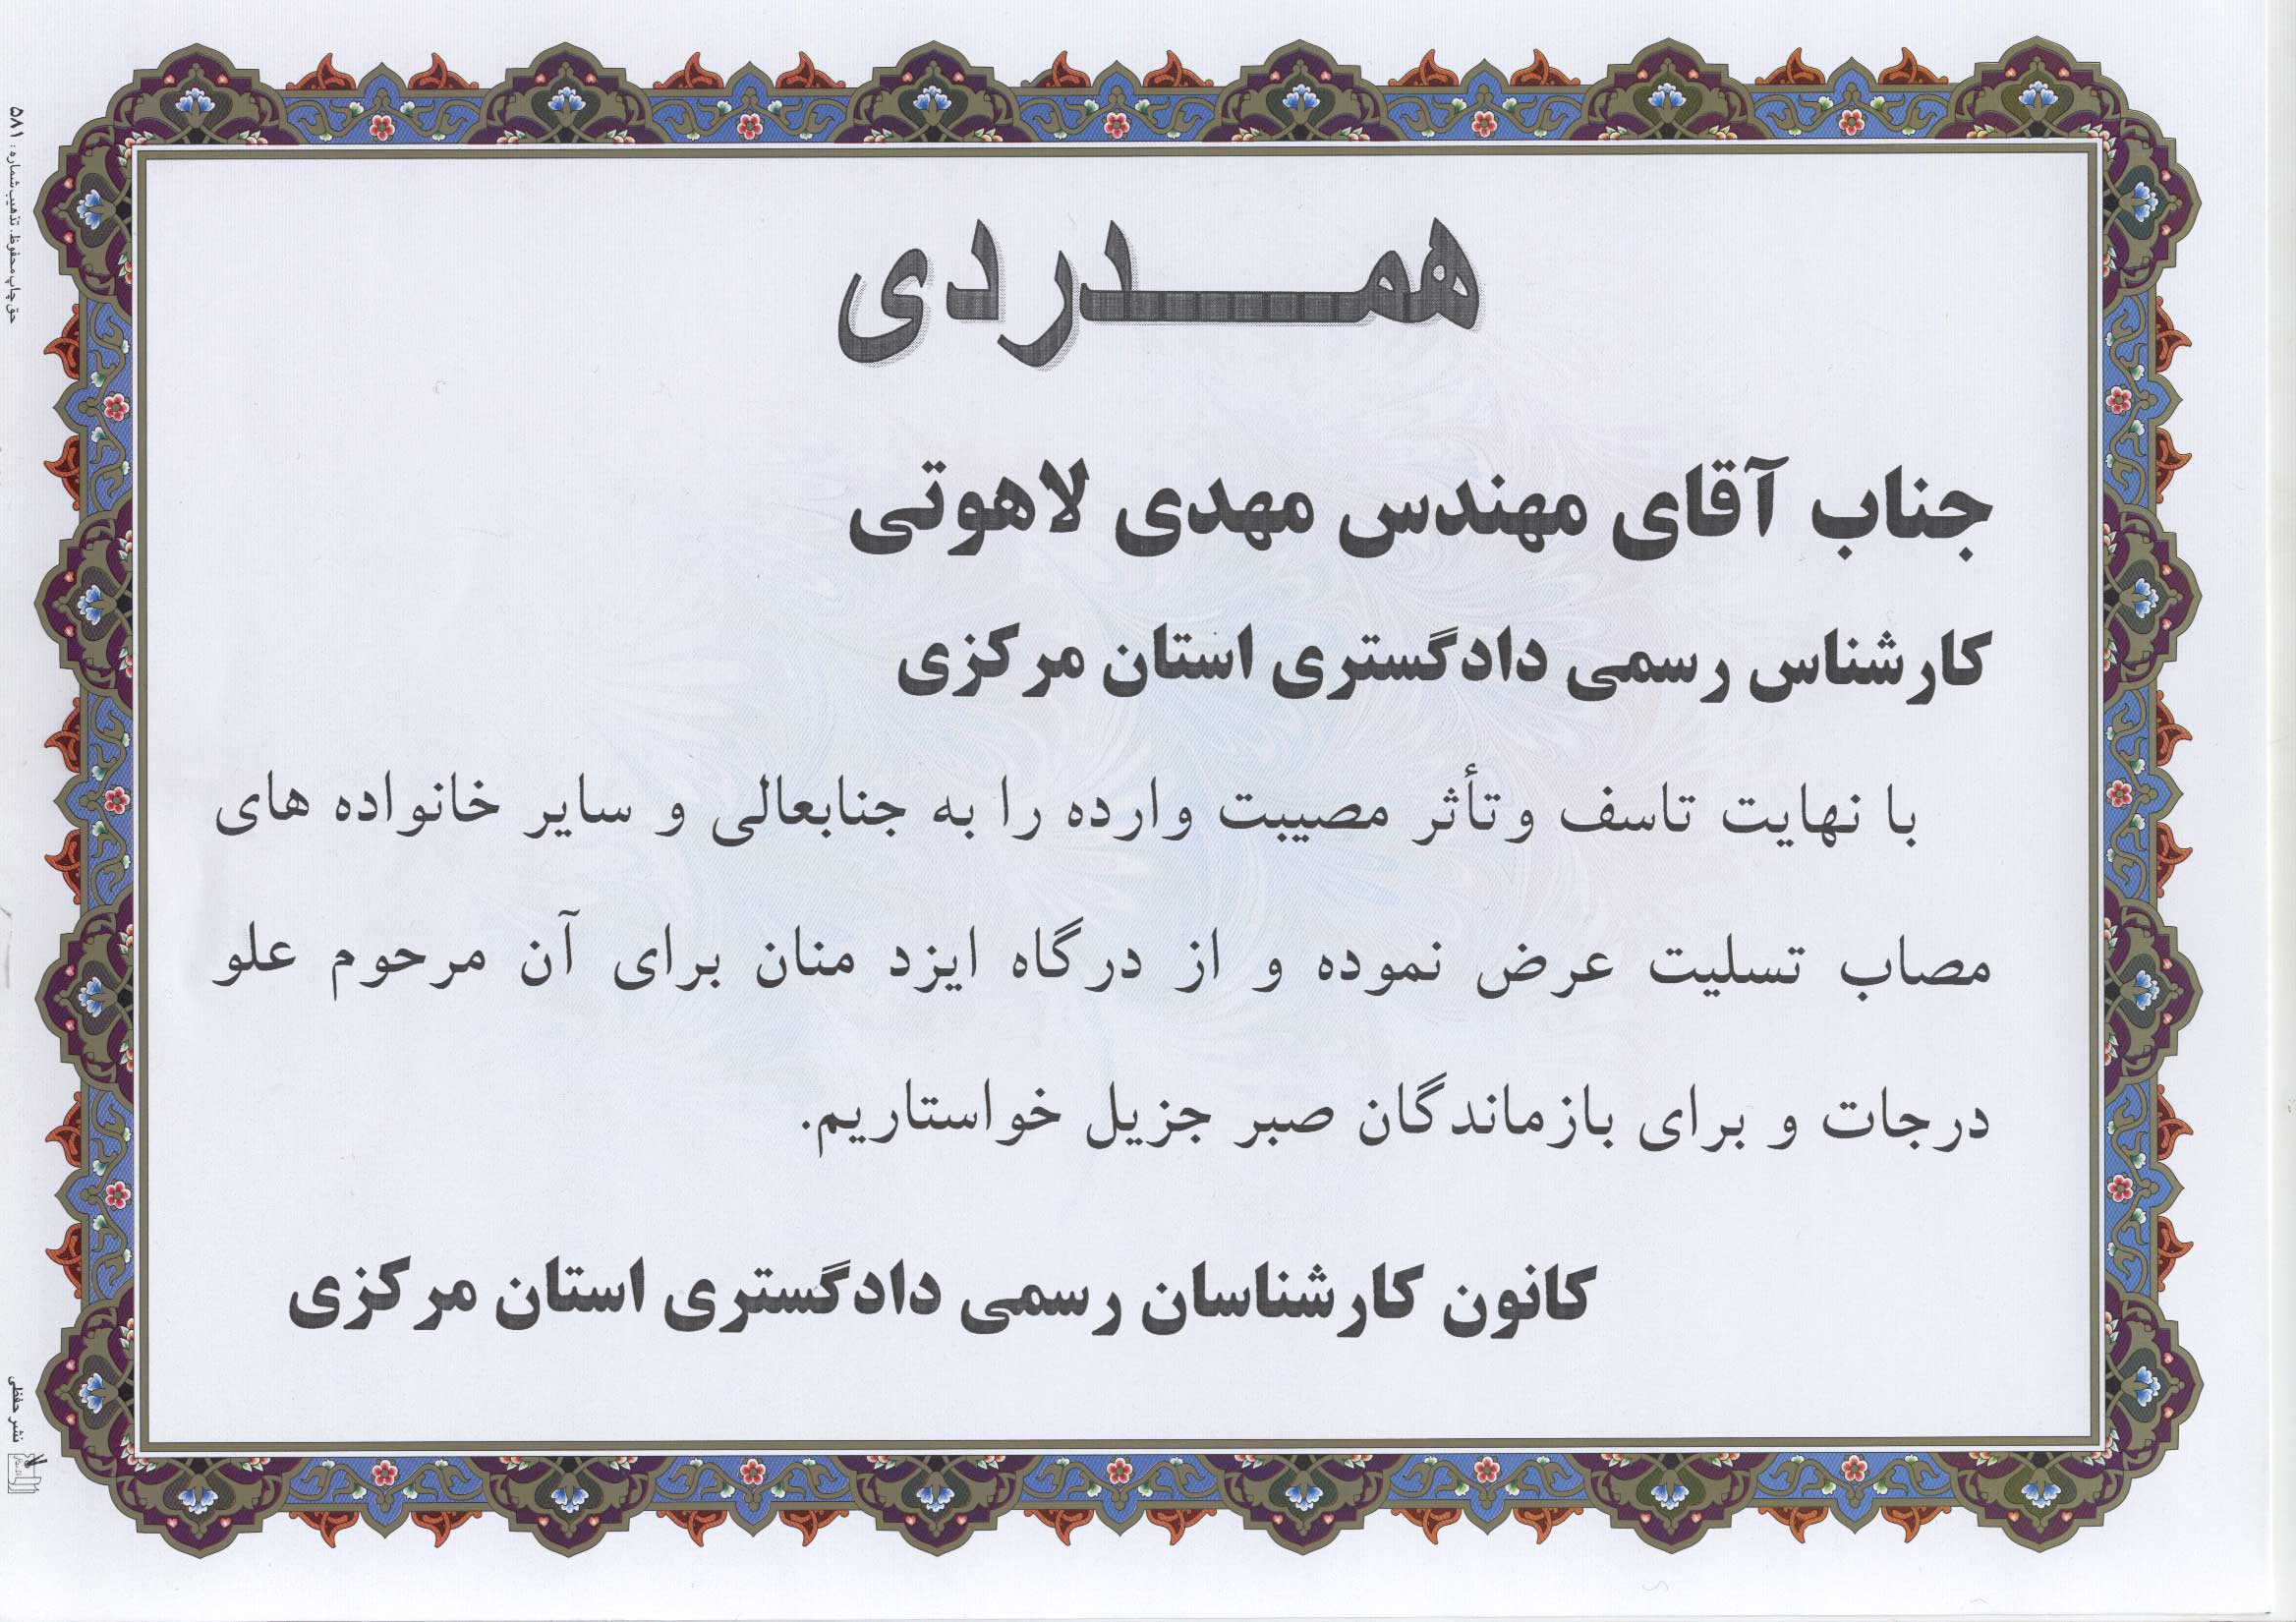 همـــــدردی
جناب آقای مهندس مهدی لاهوتی
کارشناس رسمی دادگستری استان مرکزی
با نهایت تاسف وتأثر مصیبت وارده را به جنابعالی و سایر خانواده های
مصاب تسلیت عرض نموده و از درگاه ایزد منان برای آن مرحوم علو
درجات و برای بازماندگان صبر جزیل خواستاریم.
کانون کارشناسان رسمی دادگستری استان مرکزی
حق چاپ محفوظ. تذهیب شماره : ۵۸۱
نشر حفظی